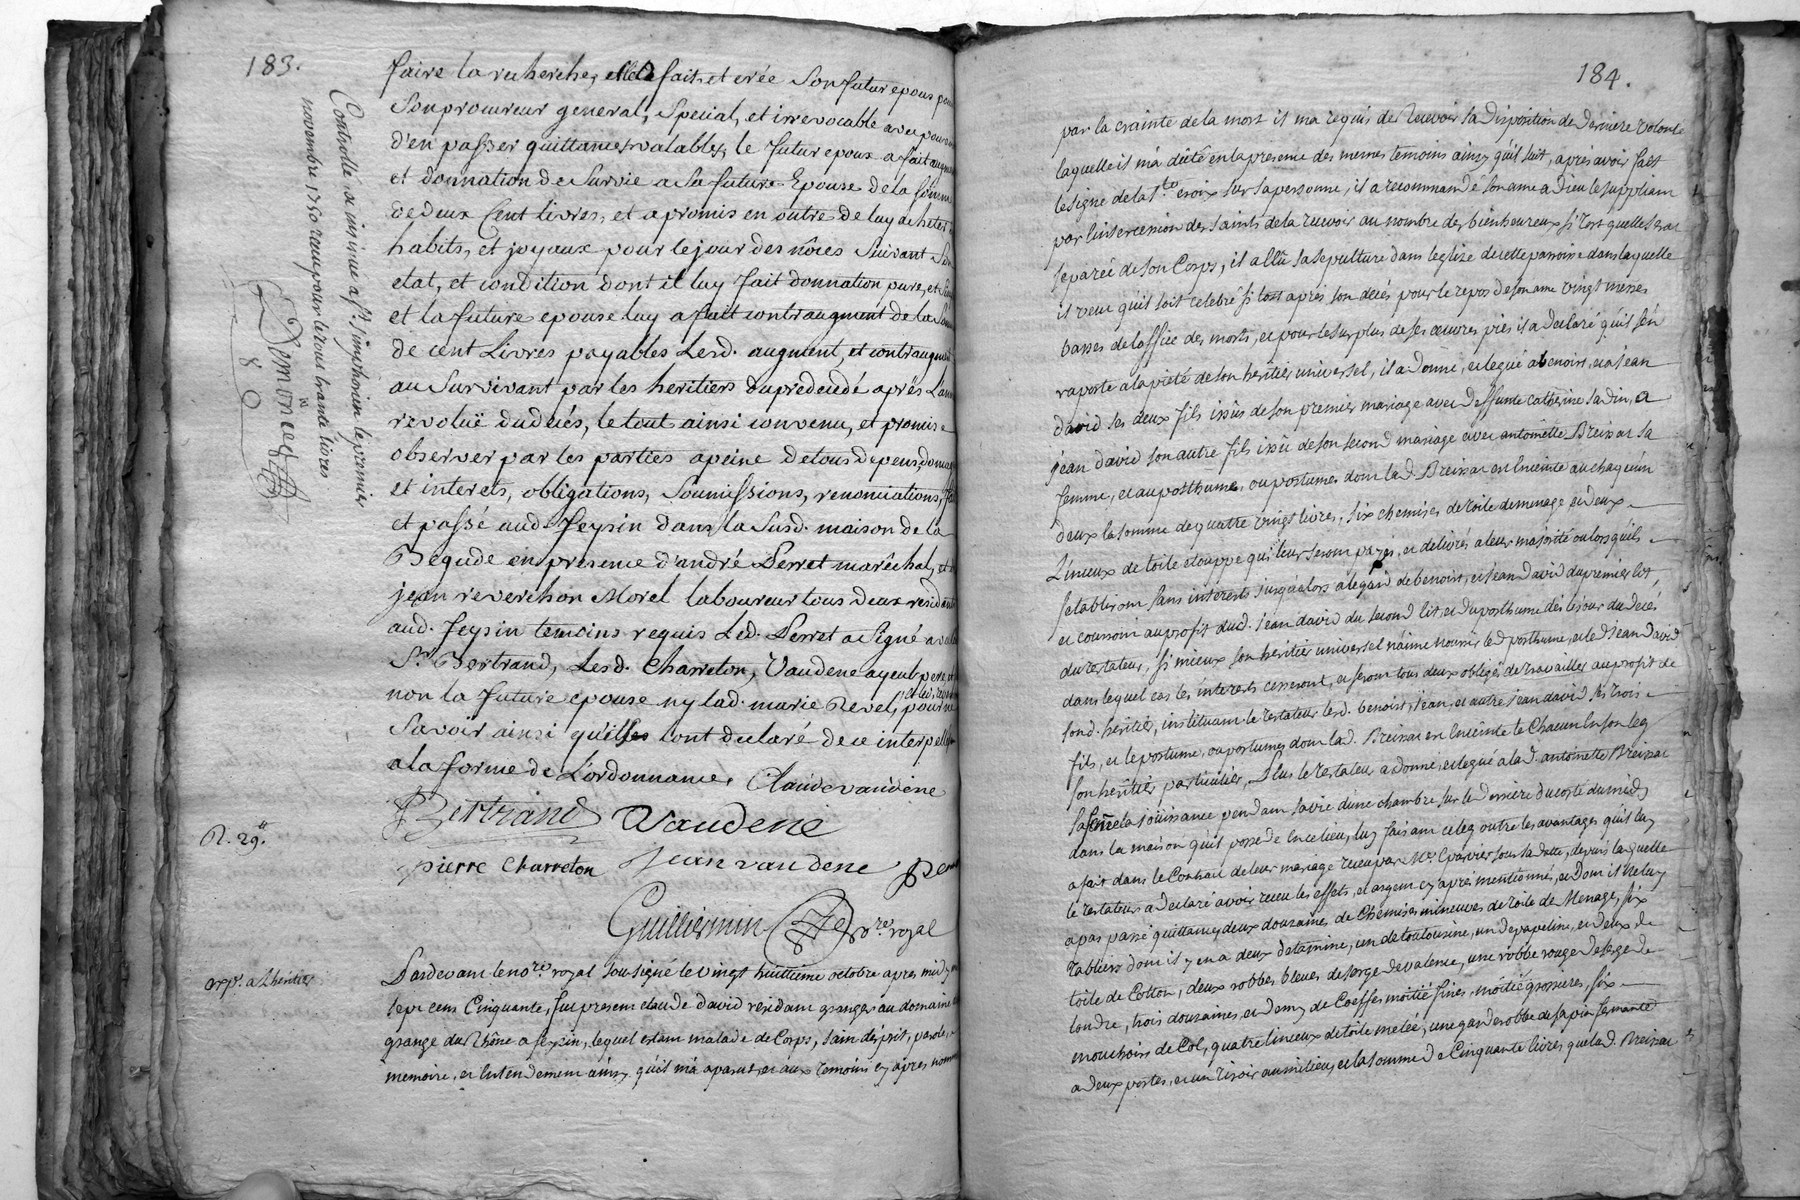 183.
faire la recherche, elle a fait, et crée son futur epoux pour
son procureur general, special, et irrevocable avec pouvoir
d'en passer quittances valables, le futur epoux a fait augment
et donnation de survie a sa future Epouse de la somme
de deux Cent livres, et a promis en outre de luy acheter
habits, et joyaux pour le jour des nôces suivant son
etat, et condition dont il luy fait donnation pure, et
et la future epouse luy a fait contraugment de la somme
de cent Livres payables Lesd. augment, et contraugment
au survivant par les heritiers du predecedé aprés L'année
revoluë du decés, le tout ainsi convenu, et promis
observer par les parties a peine de tous depens, domages
et interets, obligations, soumissions, renonciations,
et passé aud. feysin dans la susd. maison de la
Begude en presence d'andré Perret marêchal, et
jean reverchon Morel laboureur tous deux residants
aud. feysin temoins requis Led. Perret a signé avec
Sr. Bertrand, Lesd. Charreton, Vaudene ayeul, pere et
non la future epouse ny lad. marie Revel, pour ne
savoir ainsi qu'ils ont declaré de ce interpellés
a la forme de L'ordonnance. Claude vaudene
Bertrand Vaudene
pierre Charreton jean vaudene
Guilliermin nore. royal
Controlle et insinué a St. simphorien le premier
novembre 1750 receu pour le tous trante livres
80
R. 29s.
exp. a l'héritier
Pardevant le nore. royal soussigné le vingt huittieme octobre apres midy
sept cens Cinquante, fut present claude david residant granger au domaine
grange du Rhône a feysin, lequel estant malade de Corps, sain d'esprit, parole,
memoire, et entendement ainsy qu'il m'a aparu, et aux temoins cy aprés nommés
184.
par la crainte de la mort il m'a requis de recevoir sa disposition de derniere volonté
laquelle il m'a dicté en la presence des memes temoins ainsy qu'il suit, aprés avoir fait
le signe de la Ste. croix sur sa personne, il a recommandé son ame a Dieu le suppliant
par l'intercession des saints de la recevoir au nombre des bienheureux si tost qu'elle sera
separée de son Corps, il a élû sa sepulture dans l'eglise de cette parroisse dans laquelle
il veut qu'il soit celebré si tost aprés son decés pour le repos de son ame vingt messes
basses de l'office des morts, et pour le surplus de ses œuvres pies il a declaré qu'il s'en
raporte a la pieté de son heritier universel, il a donné, et legué a benoist, et a jean
david ses deux fils issûs de son premier mariage avec deffunte catherine sadin, a
jean david son autre fils issû de son second mariage avec antoinette Breissac sa
femme, et au posthume, ou postumes dont lad. Breissac est enceinte au chaqu'un
deux la somme de quatre vingt livres, six chemises de toile de menage et deux
Linceux de toile etouppe qui leur seront payés, et delivrés a leur majorité ou lors qu'ils
s'etabliront sans interests jusqu'alors a l'egard de benoist, et jean david du premier lit,
et courront au profit dud. jean david du second lit et du posthume dés le jour du decés
du testateur, si mieux son héritier universel n'aime nourrir led. posthume, et led. jean david
dans lequel cas les interests cesseront, et seront tous deux obligés de travailler au profit de
sond. heritier, instituant le testateur lesd. benoist, jean, et autre jean david ses trois
fils, et le postume, ou postumes dont lad. Breissac est enceinte le Chacun en son leg
son héritier particulier, Plus le testateur a donné, et legué a lad. antoinette Breissac
sa femme la jouissance pendant sa vie d'une chambre sur le derriere du costé du midy
dans la maison qu'il possede en ce lieu, luy faisant ce leg outre les avantages qu'il luy
a fait dans le Contrat de leur mariage receu par Me. Charvier sous sa datte, depuis laquelle
le testateur a declaré avoir receu les effets, et argent cy aprés mentionnés, et dont il ne luy
a pas passé quittance, deux douzaine de Chemises mineuves de toile de Menage, six
Tabliers dont il y en a deux d'etamine, un de toulousine, un de papeline, et deux de
toile de Cotton, deux robbes bleues de serge de valence, une robbe rouge de serge de
londre, trois douzaines, et demy de Coeffes moitié fines, moitié grossieres, six
mouchoirs de Col, quatre linceux de toile melée, une garderobbe de sapin fermante
a deux portes, et un tiroir au milieu, et la somme de Cinquante livres que lad. Breissac